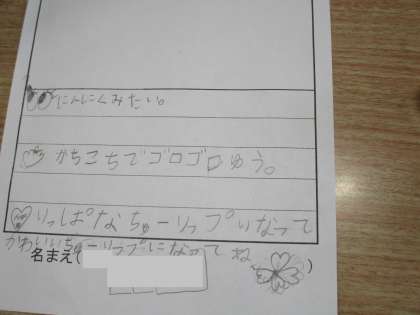 にんにくみたい。
かちこちでゴロゴロゆう。
りっぱなちゅーりっプになって
かわいいちゅーリップになってね
名まえ(
)